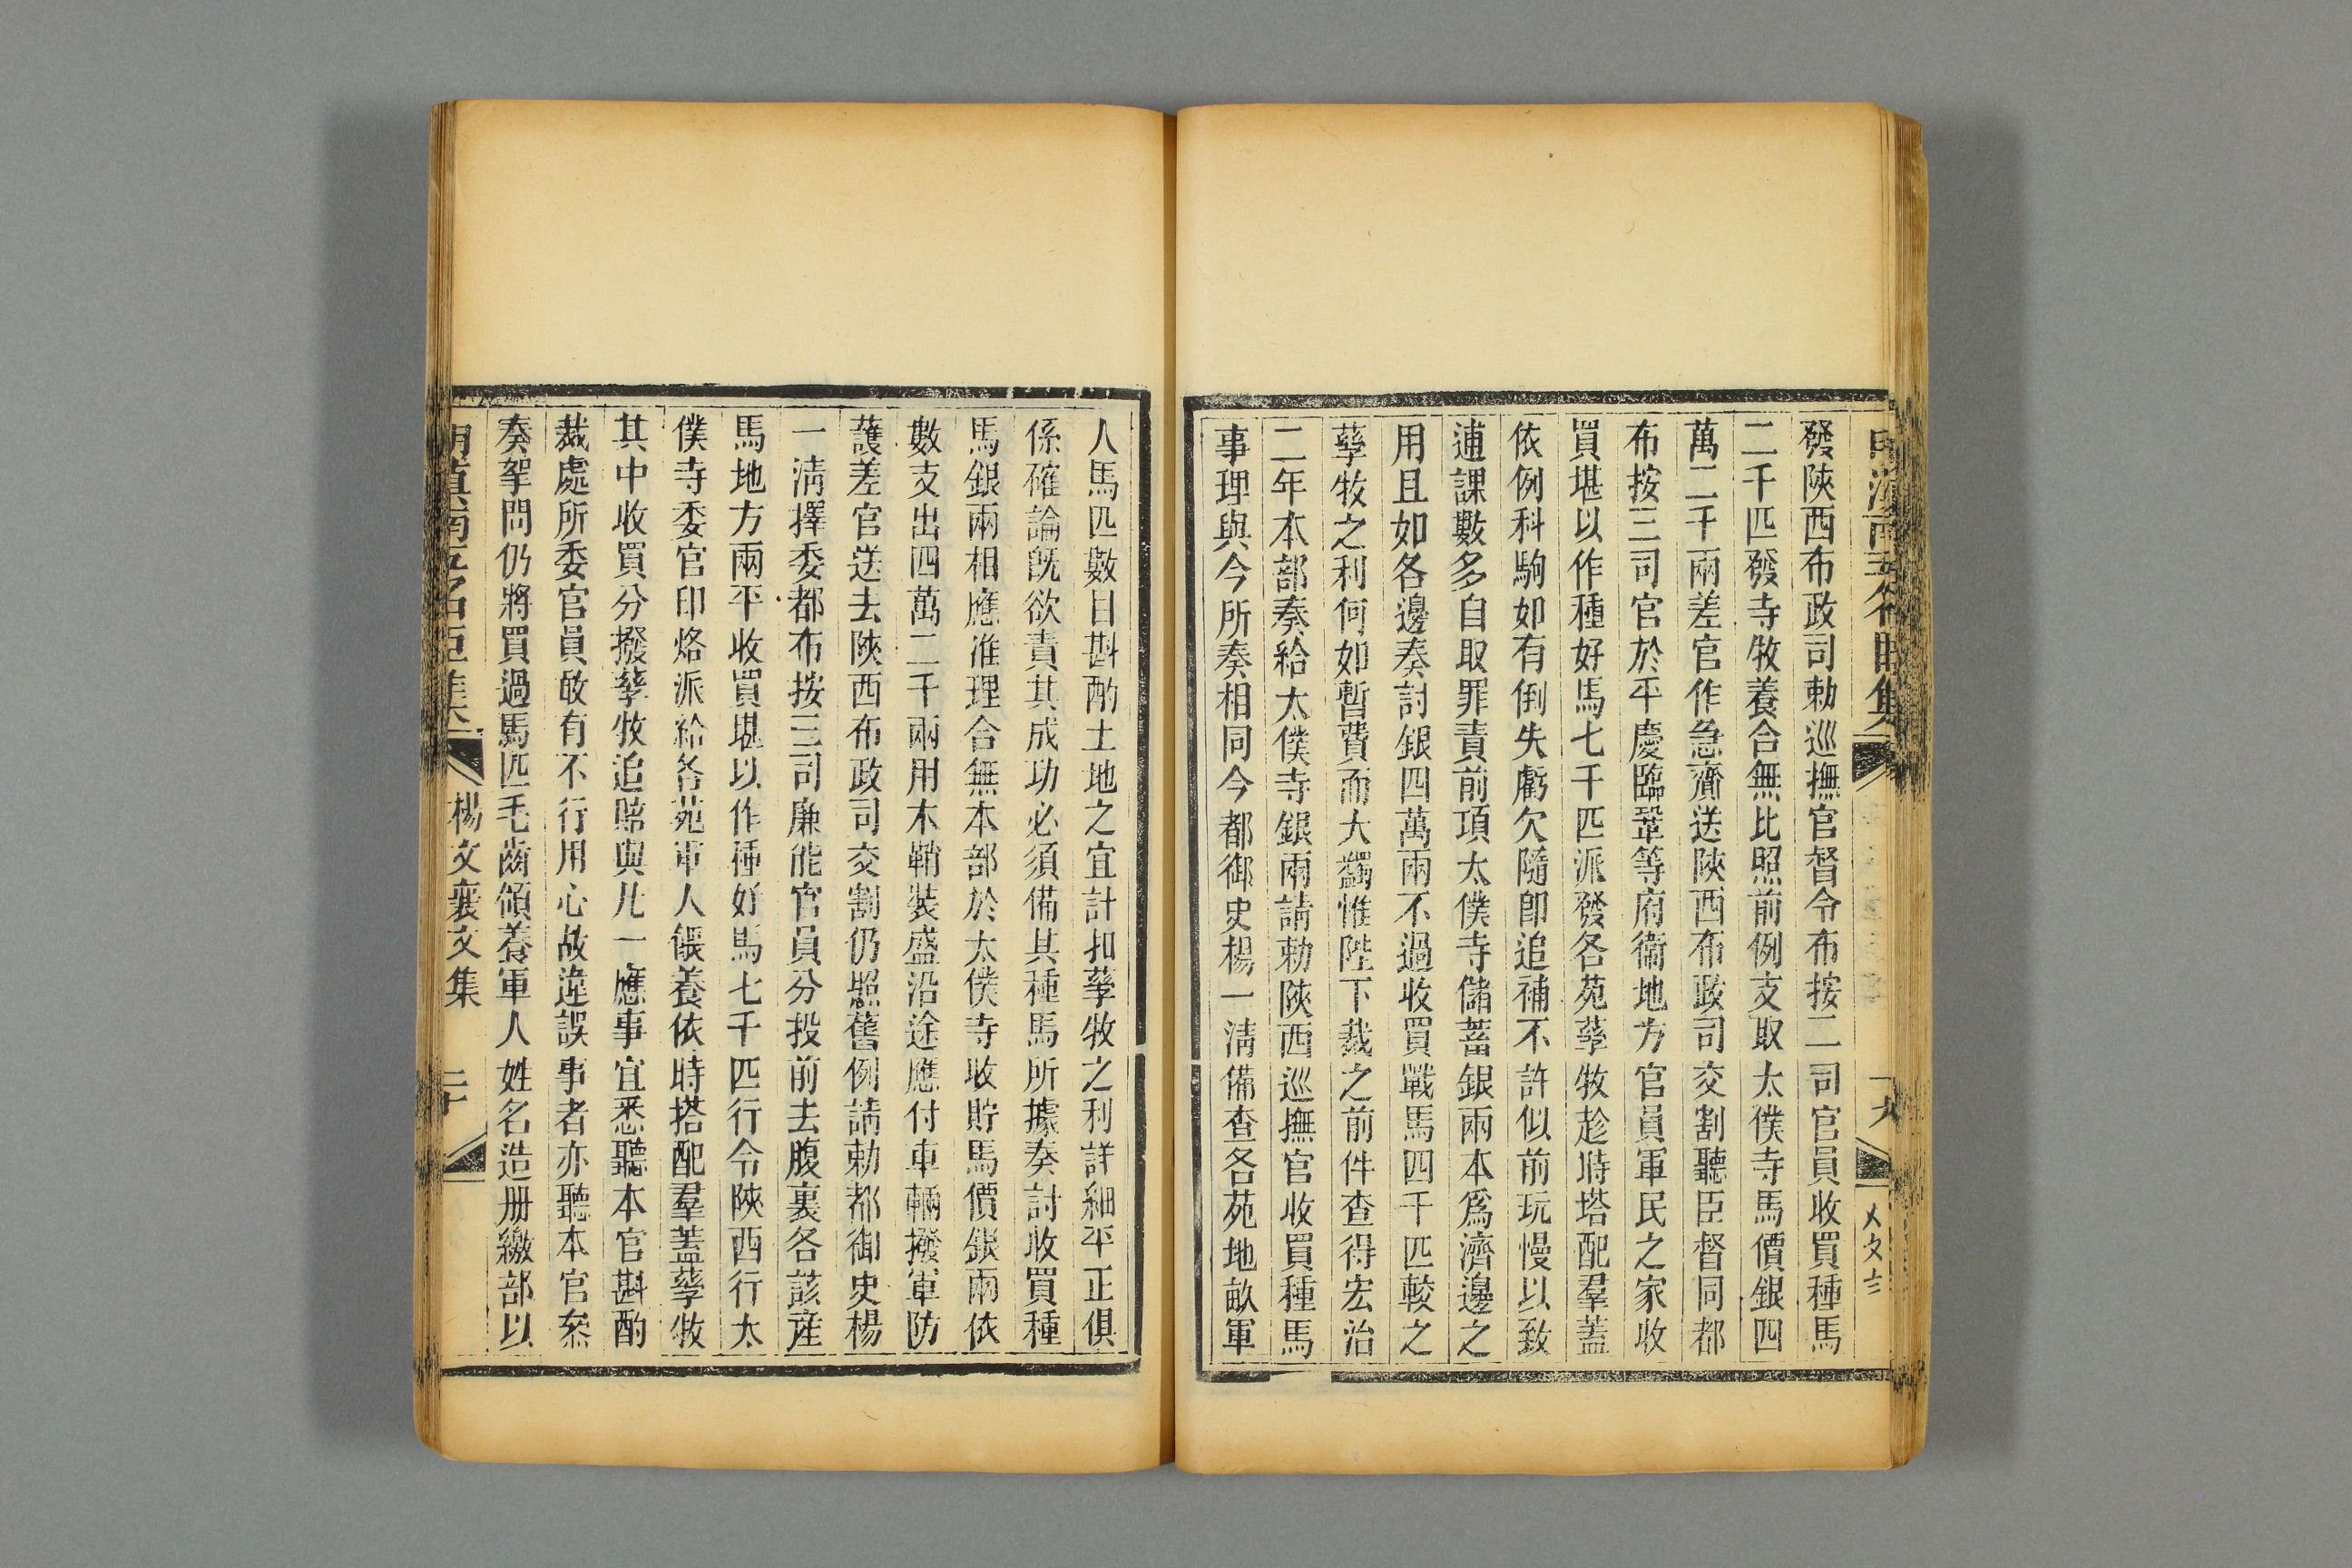 發陝西布政司勅巡撫官督令布按二司官員收買種馬
二千匹發寺牧養合無比照前例支取太僕寺馬價銀四
萬二千兩差官作急齎送陝西布政司交割聽臣督同都
布按三司官於平慶臨鞏等府衞地方官員軍民之家收
買堪以作種好馬七千匹派發各苑孳牧趁時塔配羣蓋
依例科駒如有倒失虧欠隨卽追補不許似前玩慢以致
逋課數多自取罪責前項太僕寺儲蓄銀兩本爲濟邊之
用且如各邊奏討銀四萬兩不過收買戰馬四千匹較之
孳牧之利何如暫費而大蠲惟陛下裁之前件查得宏治
二年本部奏給太僕寺銀兩請勅陝西巡撫官收買種馬
事理與今所奏相同今都御史楊一淸備查各苑地畝軍
人馬匹數目斟酌土地之宜計扣孳牧之利詳細平正俱
係確論旣欲責其成功必須備其種馬所據奏討收買種
馬銀兩相應准理合無本部於太僕寺收貯馬價銀兩依
數支出四萬二千兩用木鞘裝盛沿途應付車輛撥軍防
護差官送去陝西布政司交割仍照舊例請勅都御史楊
一淸擇委都布按三司廉能官員分投前去腹裏各該產
馬地方兩平收買堪以作種好馬七千匹行令陝西行太
僕寺委官印烙派給各苑軍人餵養依時搭配羣蓋孳牧
其中收買分撥孳牧追賠與凡一應事宜悉聽本官斟酌
裁處所委官員敢有不行用心故違誤事者亦聽本官叅
奏拏問仍將買過馬匹毛齒領養軍人姓名造册繳部以
楊文襄文集 二十